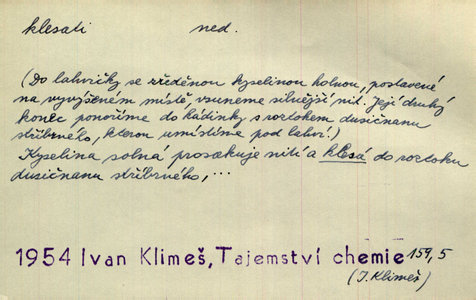 klesati ned.
(Do lahvičky se zředěnou kyselinou solnou, postavené
na vyvýšeném místě, vsuneme silnější nit. Její druhý
konec ponoříme do kádinky s roztokem dusičnanu
stříbrného, kterou umístíme pod lahví.)
Kyselina solná prosakuje nití a klesá do roztoku
dusičnanu stříbrného, ...
1954 Ivan Klimeš, Tajemství chemie 159, 5
(I. Klimeš)